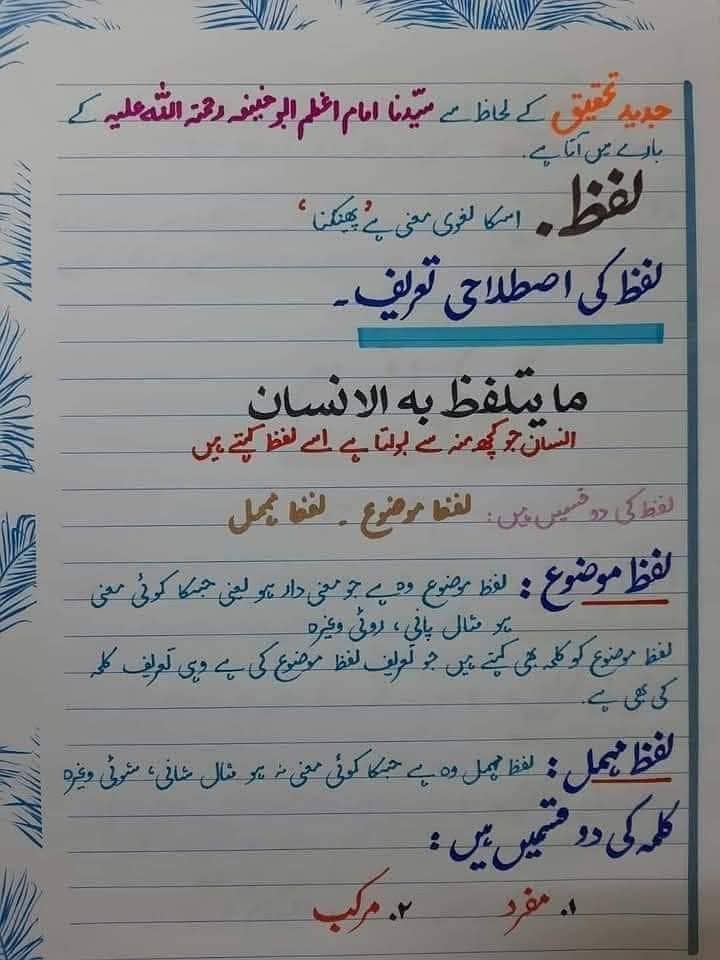 جدید تحقیق کے لحاظ سے سیّدنا امام اعظم ابو حنیفہ رحمتہ اللہ علیہ کے
بارے میں آتا ہے۔
لفظ. اسکا لغوی معنی ہے ’پھینکنا‘
لفظ کی اصطلاحی تعریف۔
ما یتلفظ به الانسان
انسان جو کچھ منہ سے بولتا ہے اسے لفظ کہتے ہیں
لفظ کی دو قسمیں ہیں: لفظ موضوع ۔ لفظ مہمل
لفظ موضوع: لفظ موضوع وہ ہے جو معنی دار ہو یعنی جسکا کوئی معنی
ہو مثال پانی، روٹی وغیرہ
لفظ موضوع کو کلمہ بھی کہتے ہیں جو تعریف لفظ موضوع کی ہے وہی تعریف کلمہ
کی بھی ہے۔
لفظ مہمل: لفظ مہمل وہ ہے جسکا کوئی معنی نہ ہو مثال شانی، شوٹی وغیرہ
کلمہ کی دو قسمیں ہیں:
۱. مفرد ۲. مرکب